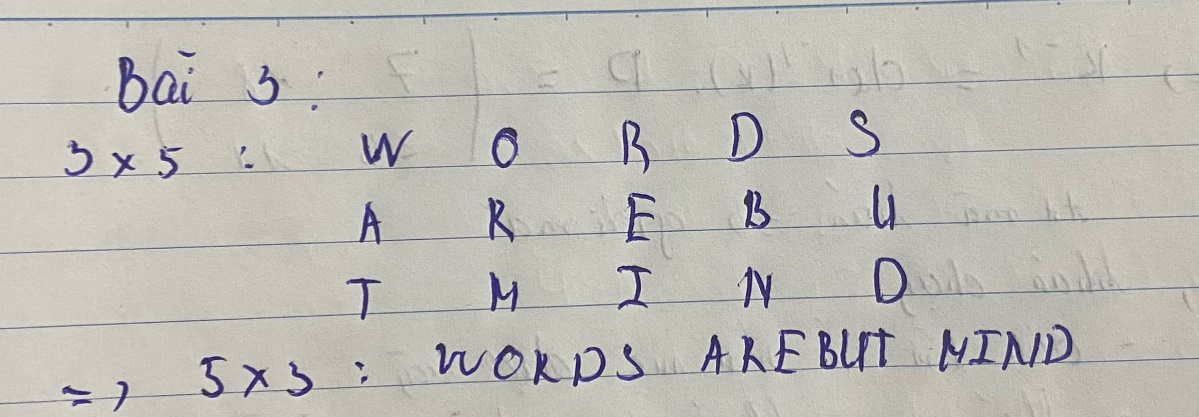 Bài 3 :
3 x 5 : W O R D S
A R E B U
T M I N D
=> 5 x 3 : WORDS AREBUT MIND